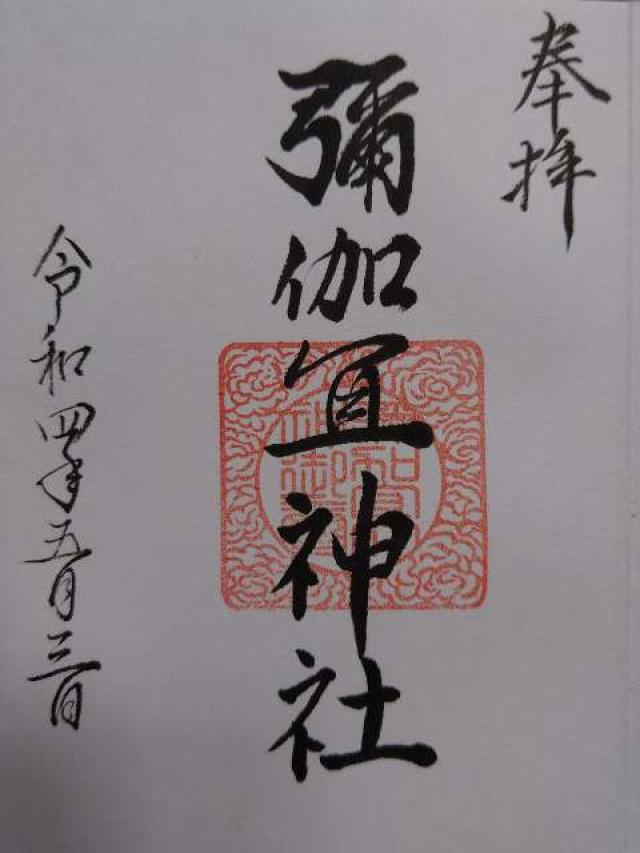 奉拝
彌伽宜神社
令和四年五月三日